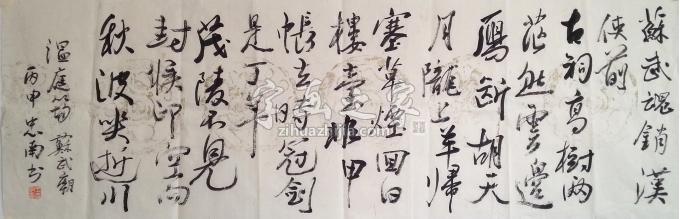 蘇武魂銷漢
使前
古祠高樹兩
茫然雲邊
雁斷胡天
月隴上羊歸
塞草煙回日
樓臺非甲
帳去時冠劍
是丁年
茂陵不見
封侯印空向
秋波哭逝川
溫庭筠 蘇武廟
丙申 忠南书
字画之家
zihuazhijia.com